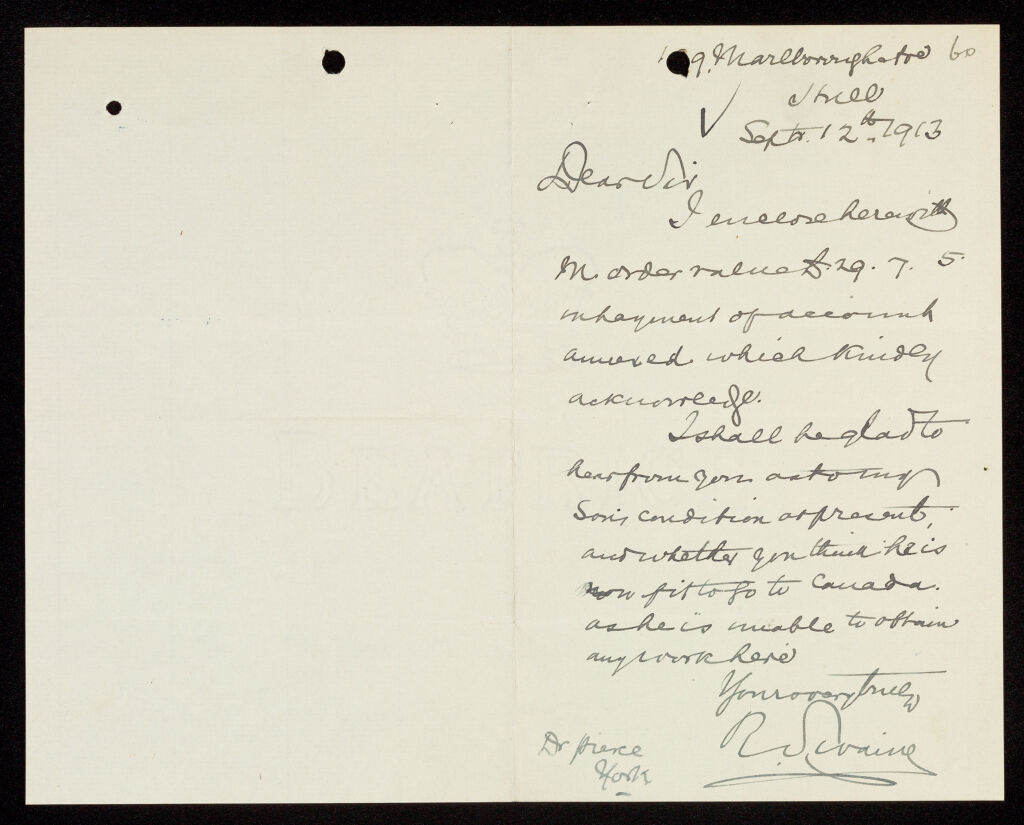 9. Marlborough Ave 60
Hull
Septr. 12th. 1913
Dear Sir
I enclose herewith
M. order value £29. 7. 5
in payment of account
annexed which kindly
acknowledge.
I shall be glad to
hear from you as to my
Son's condition at present,
and whether you think he is
now fit to go to Canada.
as he is unable to obtain
any work here
Yours very truly
R. Swaine
Dr Pierce
York